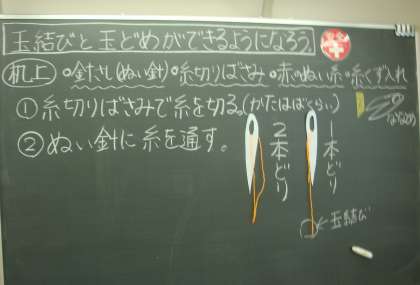 玉結びと玉どめができるようになろう。
安全
机上 ○針さし(ぬい針) ○糸切りばさみ ○赤のぬい糸 ○糸くず入れ
① 糸切りばさみで糸を切る。(かたはばくらい)
ななめ
② ぬい針に糸を通す。
2本どり
1本どり
玉結び